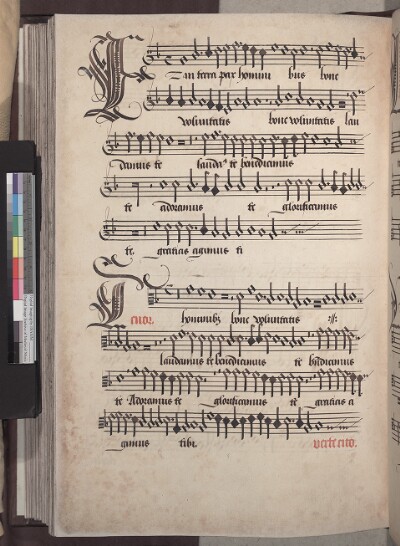 Et in terra pax homini bus bone
voluntatis bone voluntatis lau
damus te lauda te benedicamus
te adoramus te glorificamus
te. gratias agimus ti
Tenor. hominibus bone voluntatis :||:
laudamus te benedicimus te benedicimus
te Adoramus te glorificamus te gratias a
gimus tibi. verte cito.